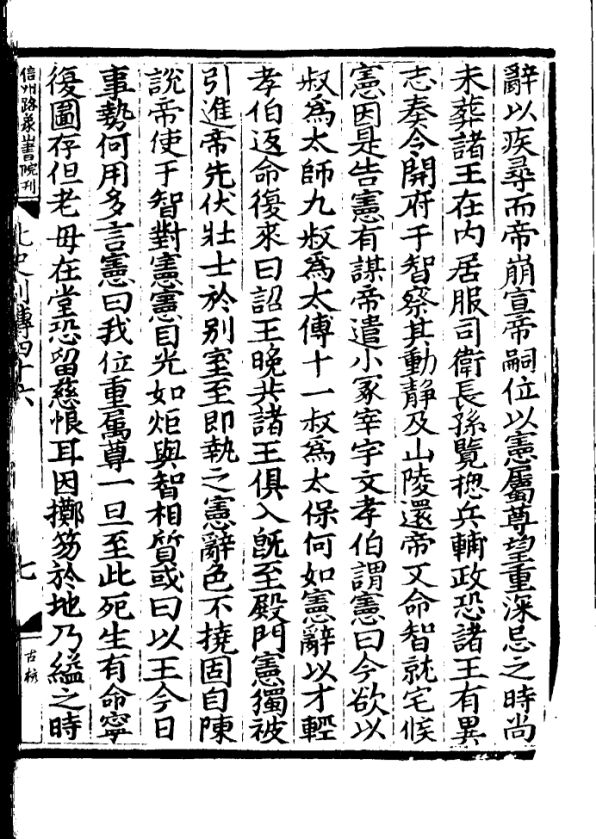 辭以疾尋而帝崩宣帝嗣位以憲屬尊望重深忌之時尚
未葬諸王在内居服司衛長孫覽揔兵輔政恐諸王有異
志奏令開府于智察其動静及山陵還帝又命智就宅候
憲因是告憲有謀帝遣小冢宰宇文孝伯謂憲曰今欲以
叔爲太師九叔爲太傅十一叔爲太保何如憲辭以才輕
孝伯返命復來曰詔王晚共諸王俱入旣至殿門憲獨被
引進帝先伏壮士於别室至即執之憲辭色不撓固自陳
說帝使于智對憲憲目光如炬與智相質或曰以王今日
事勢何用多言憲曰我位重屬尊一旦至此死生有命寧
復圖存但老母在堂恐留慈恨耳因擲笏於地乃縊之時
信州路象山書院刊
北史列傳四十六
七
古杭